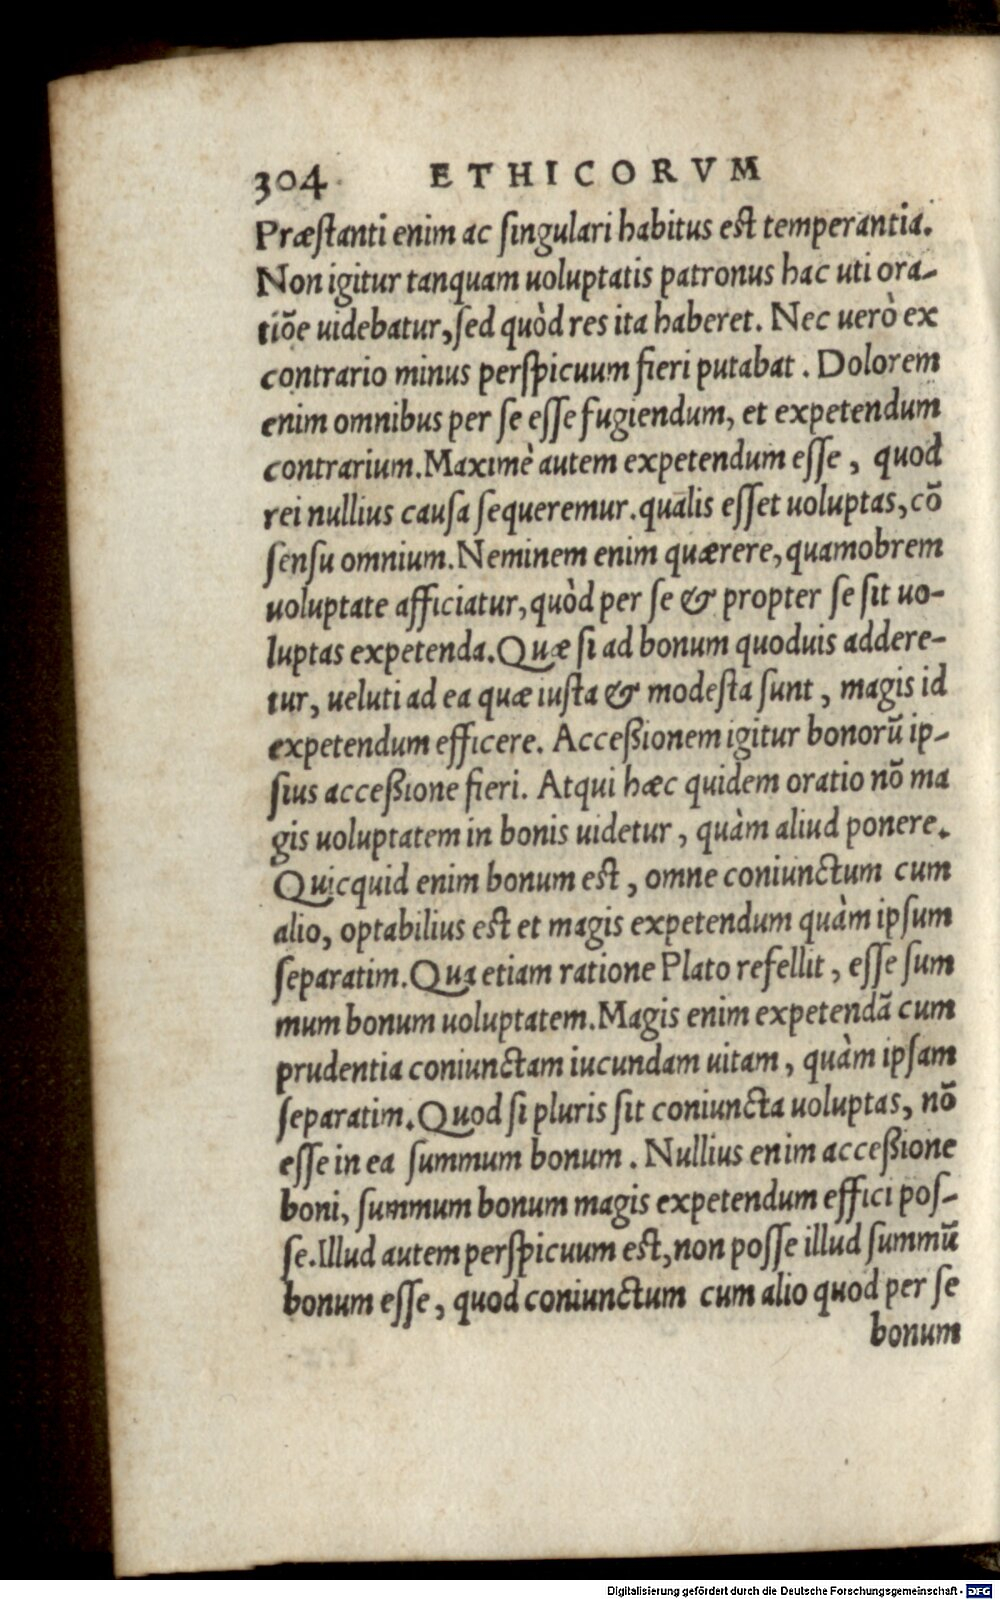 304 ETHICORVM
Præſtanti enim ac ſingulari habitus eſt temperantia.
Non igitur tanquam uoluptatis patronus hac uti ora-
tiõe uidebatur, ſed quòd res ita haberet. Nec uerò ex
contrario minus perſpicuum fieri putabat. Dolorem
enim omnibus per ſe eſſe fugiendum, et expetendum
contrarium. Maximè autem expetendum eſſe, quod
rei nullius cauſa ſequeremur. qualis eſſet uoluptas, cõ
ſenſu omnium. Neminem enim quærere, quamobrem
uoluptate afficiatur, quòd per ſe & propter ſe ſit uo-
luptas expetenda. Quæ ſi ad bonum quoduis addere-
tur, ueluti ad ea quæ iuſta & modeſta ſunt, magis id
expetendum efficere. Acceßionem igitur bonorũ ip-
ſius acceßione fieri. Atqui hæc quidem oratio nõ ma
gis uoluptatem in bonis uidetur, quàm aliud ponere.
Quicquid enim bonum eſt, omne coniunctum cum
alio, optabilius eſt et magis expetendum quàm ipſum
ſeparatim. Qua etiam ratione Plato refellit, eſſe ſum
mum bonum uoluptatem. Magis enim expetendã cum
prudentia coniunctam iucundam uitam, quàm ipſam
ſeparatim. Quod ſi pluris ſit coniuncta uoluptas, nõ
eſſe in ea ſummum bonum. Nullius enim acceßione
boni, ſummum bonum magis expetendum effici poſ-
ſe. Illud autem perſpicuum eſt, non poſſe illud ſummũ
bonum eſſe, quod coniunctum cum alio quod per ſe
bonum
Digitalisierung gefördert durch die Deutsche Forschungsgemeinschaft - DFG